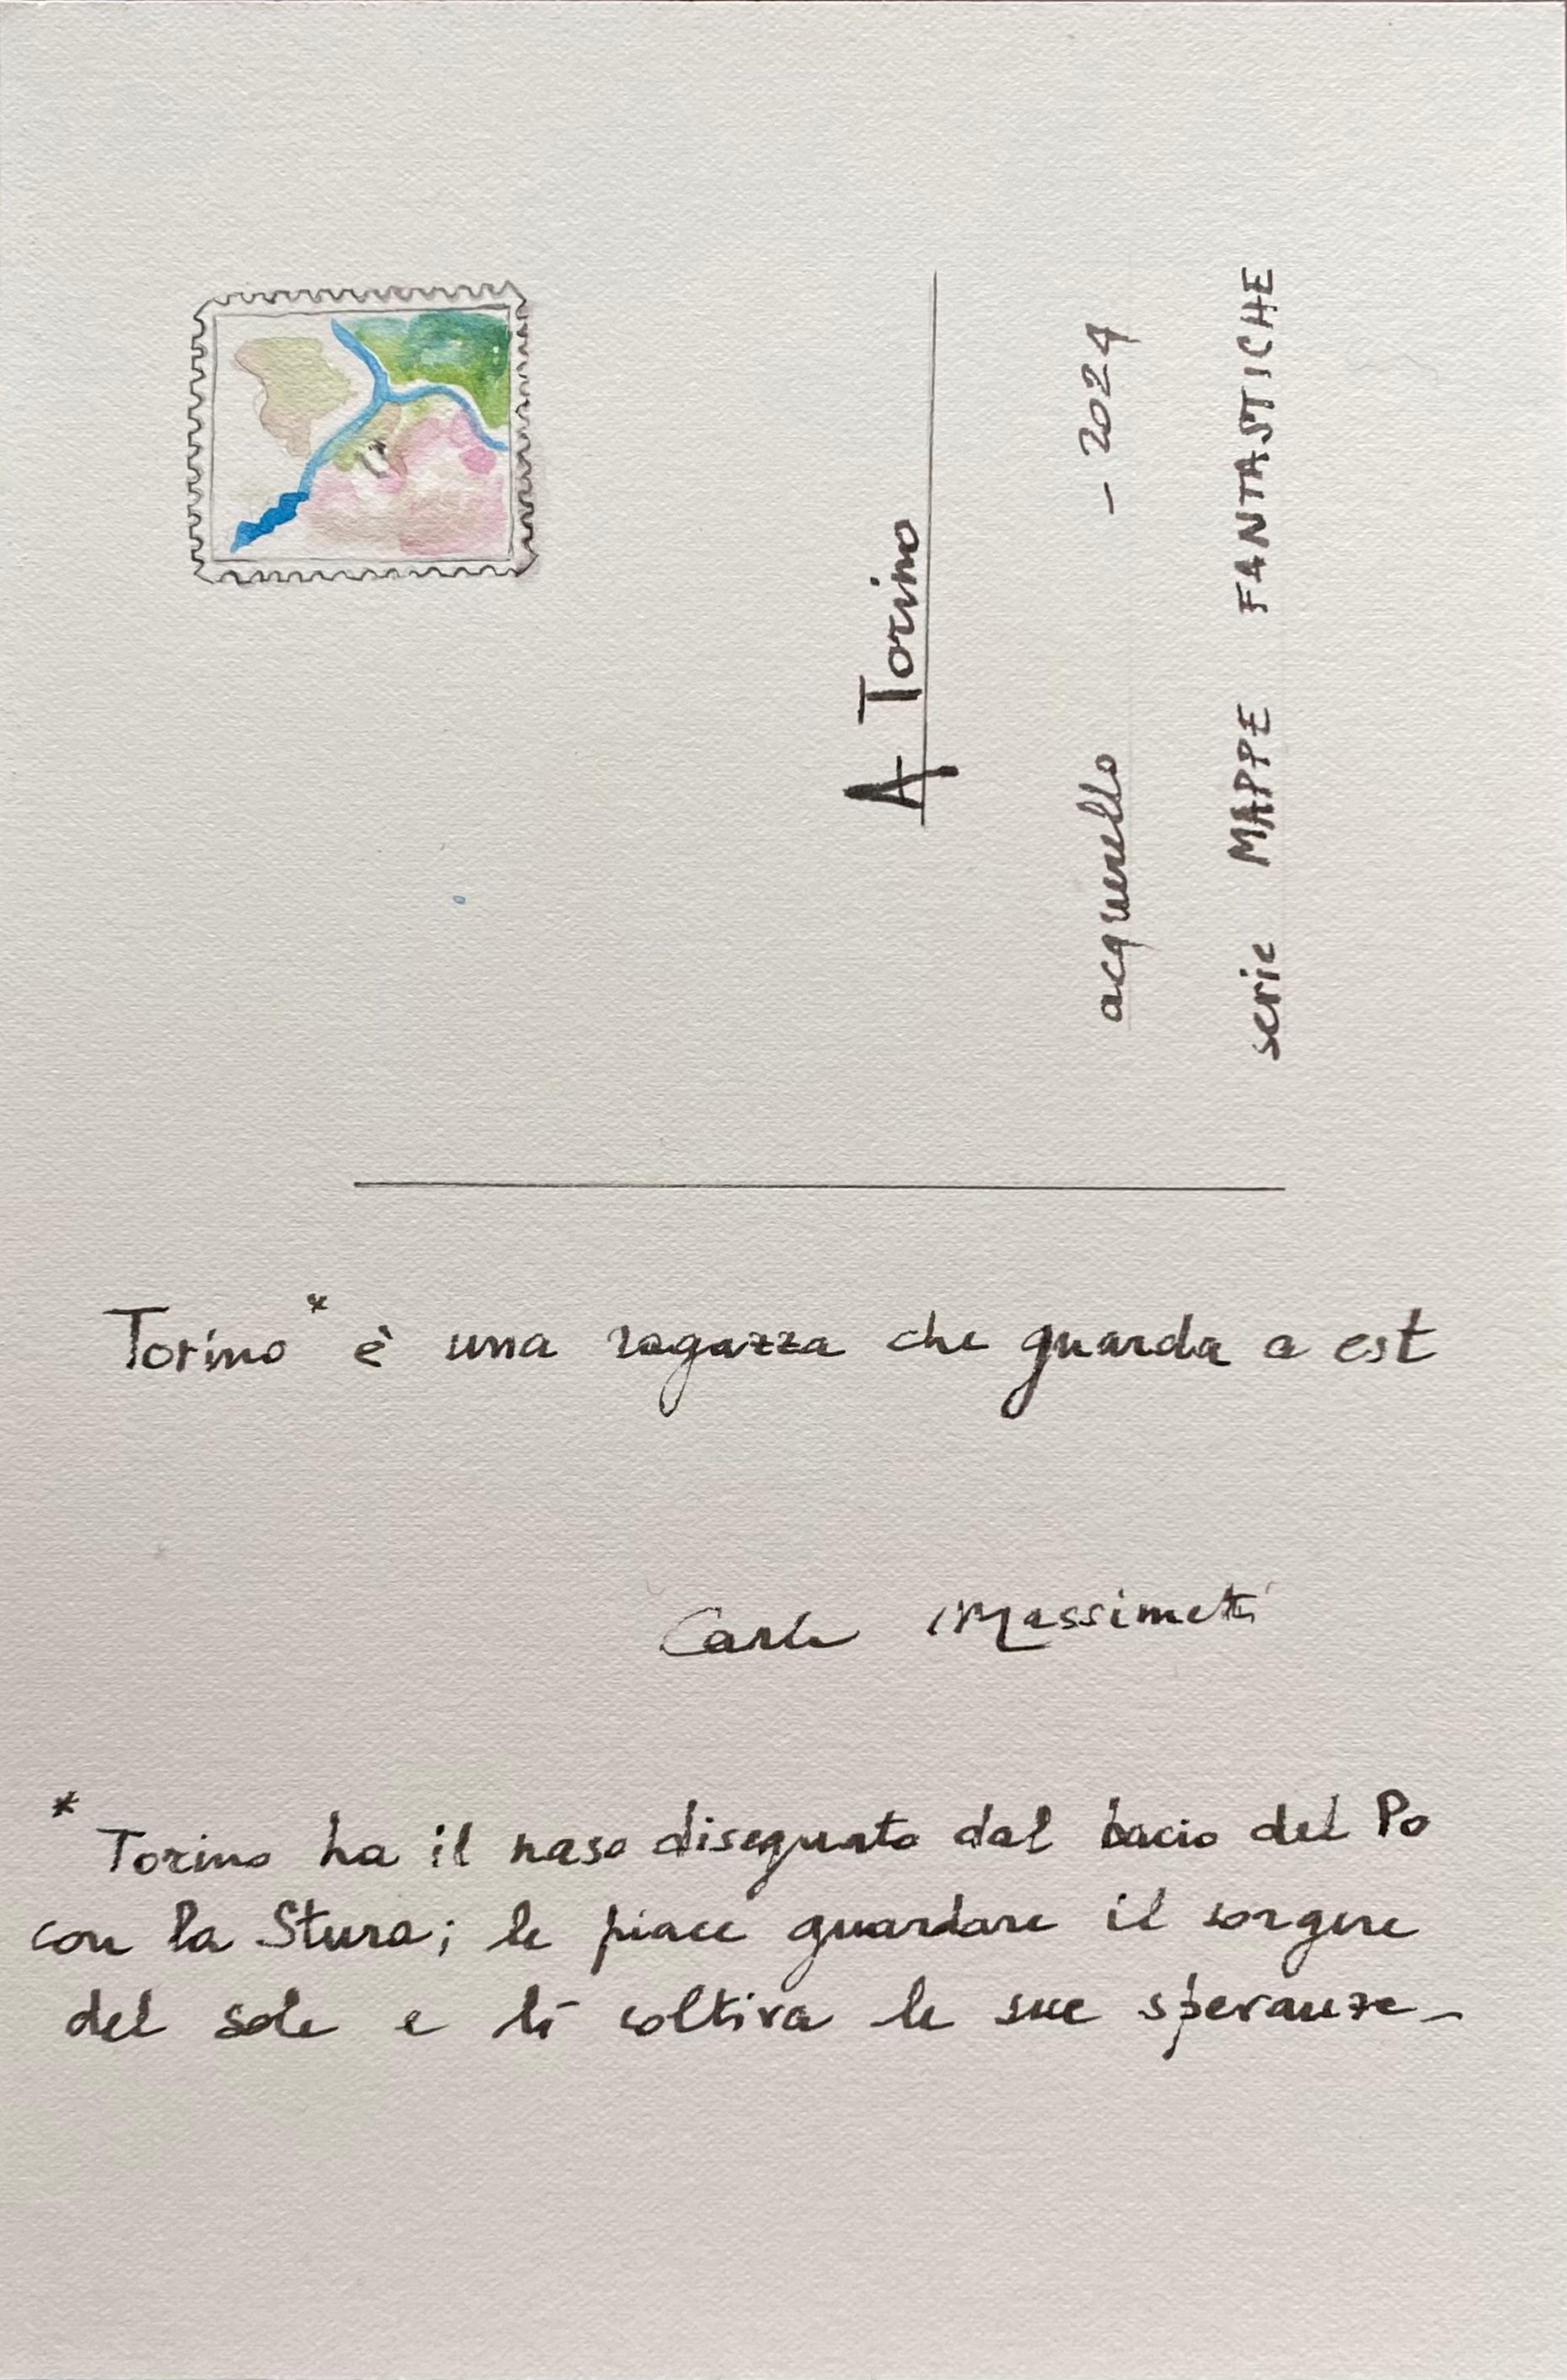 A Torino
acquerello - 2024
serie MAPPE FANTASTICHE
Torino* è una ragazza che guarda a est
Carla Massimetti
* Torino ha il naso disegnato dal bacio del Po
con la Stura; le piace guardare il sorgere
del sole e lì coltiva le sue speranze -